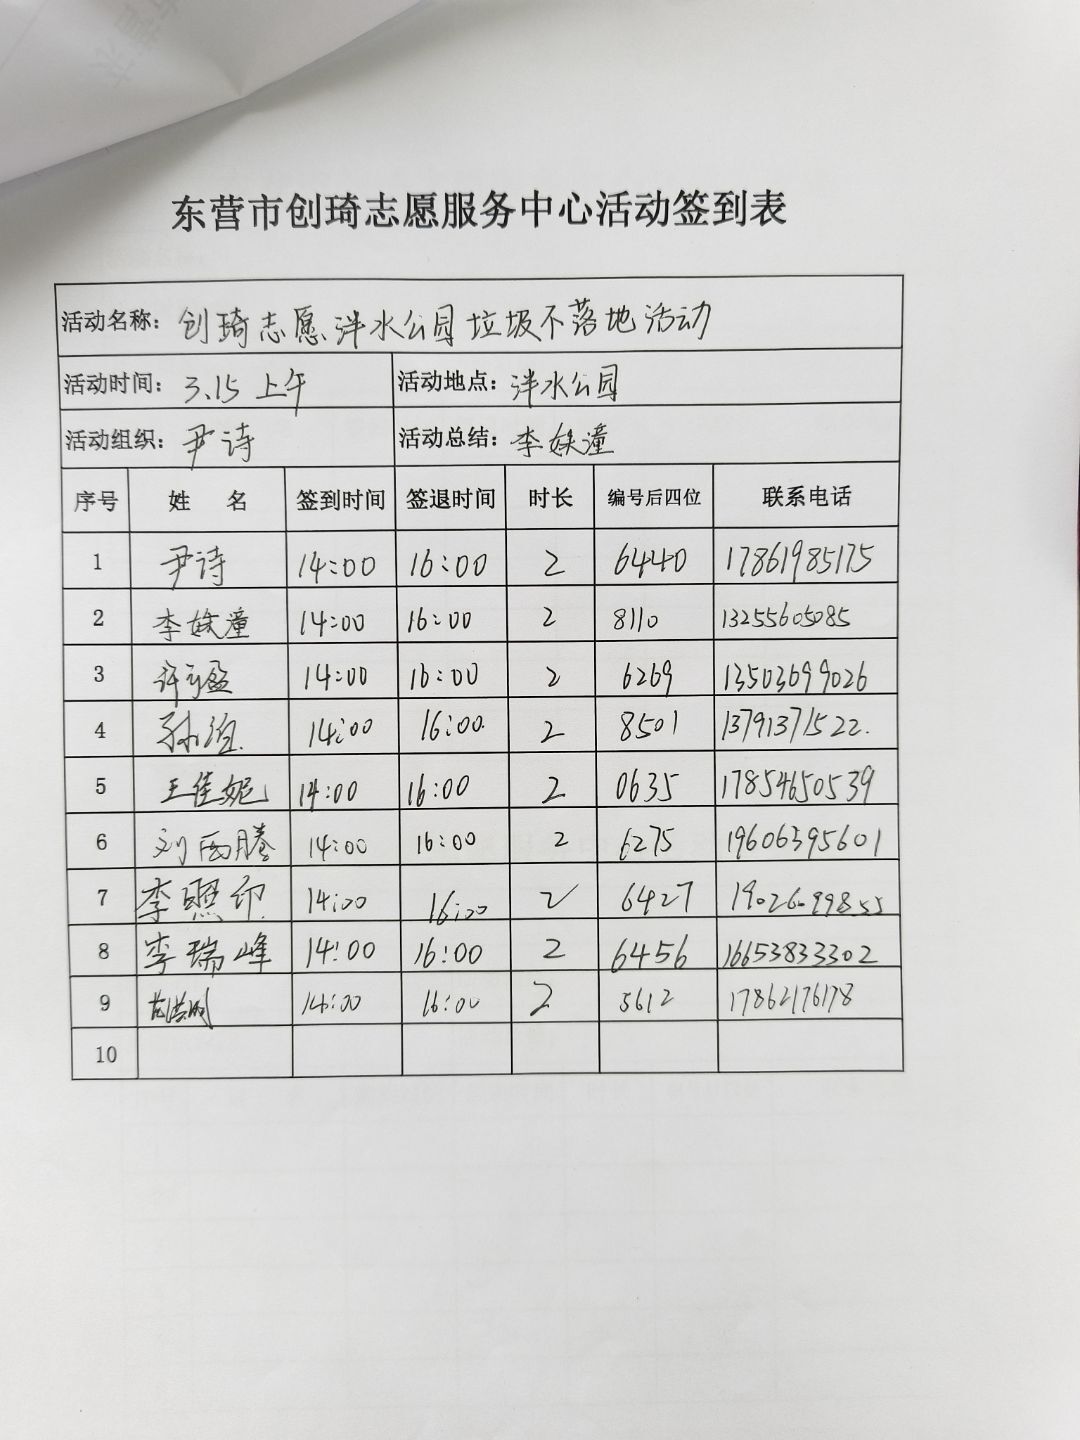 东营市创琦志愿服务中心活动签到表
活动名称: 创琦志愿泮水公园垃圾不落地活动
活动时间: 3.15 上午 活动地点: 泮水公园
活动组织: 尹诗 活动总结: 李姝潼
序号 姓 名 签到时间 签退时间 时长 编号后四位 联系电话
1 尹诗 14:00 16:00 2 6440 17861985175
2 李姝潼 14:00 16:00 2 8110 13255605085
3 14:00 16:00 2 6269 13503699026
4 14:00 16:00 2 8501 13791371522.
5 王佳妮 14:00 16:00 2 0635 17854650539
6 刘雨腾 14:00 16:00 2 6275 19606395601
7 李照印 14:00 16:00 2 6427 19026099855
8 李瑞峰 14:00 16:00 2 6456 16653833302
9 14:00 16:00 2 5612 17862176178
10